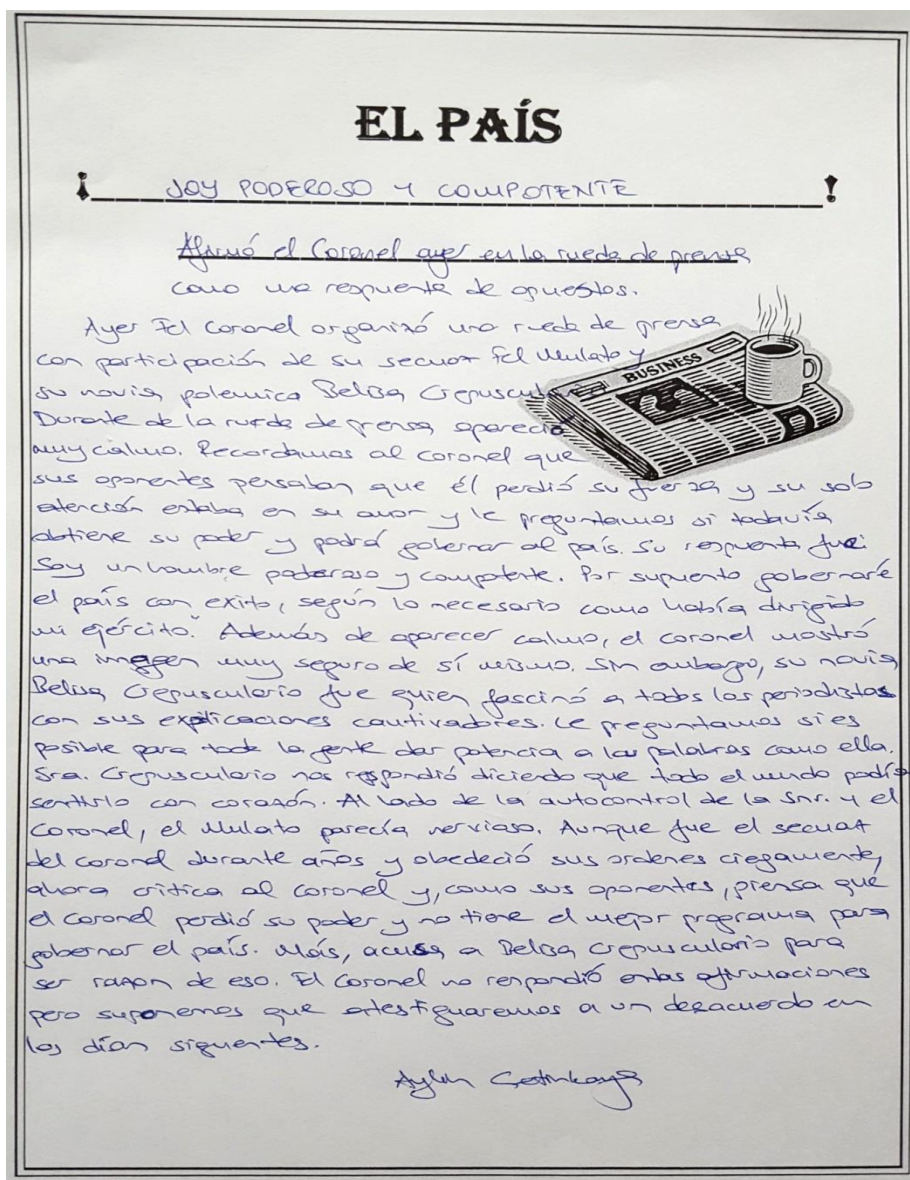 EL PAÍS
¡ SOY PODEROSO Y COMPOTENTE !
Afirmó el Coronel ayer en la rueda de prensa
como una respuesta de opuestos.
Ayer El Coronel organizó una rueda de prensa
con participación de su secuaz El Mulato y
su novia polemica Belisa Crepusculario
BUSINESS
Durante de la rueda de prensa apareció
muy calmo. Recordamos al coronel que
sus oponentes pensaban que él perdió su fuerza y su sola
atención estaba en su amor y le preguntamos si todavía
obtiene su poder y podrá gobernar al país. Su respuesta fue:
Soy un hombre poderoso y competente. Por supuesto gobernaré
el país con exito, según lo necesario como había dirigido
mi ejército." Además de aparecer calmo, el coronel mostró
una imagen muy seguro de sí mismo. Sin embargo, su novia
Belisa Crepusculario fue quien fascinó a todos los periodistas
con sus explicaciones cautivadores. Le preguntamos si es
posible para toda la gente dar potencia a las palabras como ella.
Sra. Crepusculario nos respondió diciendo que todo el mundo podía
sentirlo con corazón. Al lado de la autocontrol de la Snr. y el
Coronel, el Mulato parecía nervioso. Aunque fue el secuaz
del coronel durante años y obedeció sus ordenes ciegamente,
ahora critica al coronel y, como sus oponentes, piensa que
el coronel perdió su poder y no tiene el mejor programa para
gobernar el país. Más, acusa a Belisa Crepusculario para
ser razon de eso. El Coronel no respondió estas afirmaciones
pero suponemos que atestiguaremos a un desacuerdo en
los días siguentes.